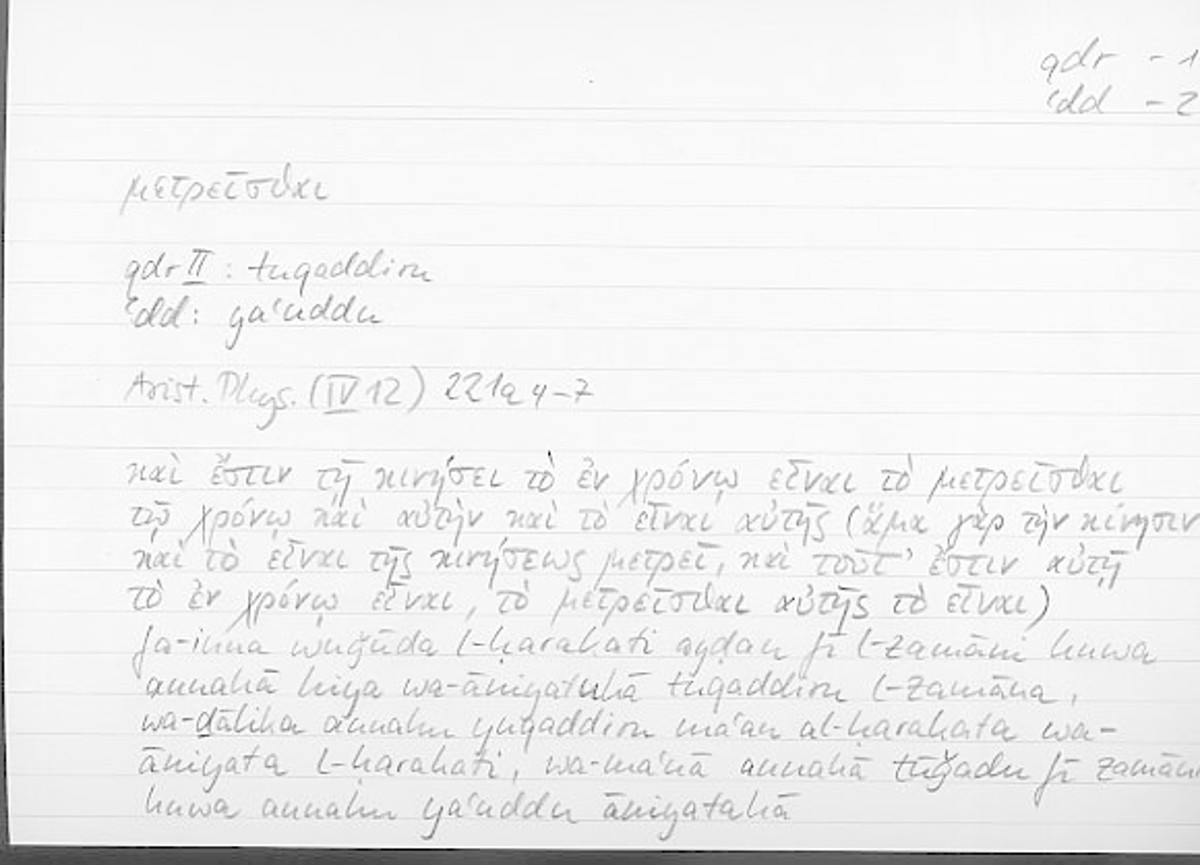 qdr - 1
ʿdd - 2
μετρεῖσθαι
qdr II : tuqaddiru
ʿdd : yaʿuddu
Arist. Phys. (IV 12) 221a4-7
καὶ ἔστιν τῇ κινήσει τὸ ἐν χρόνῳ εἶναι τὸ μετρεῖσθαι
τῷ χρόνῳ καὶ αὐτὴν καὶ τὸ εἶναι αὐτῆς (ἅμα γὰρ τὴν κίνησιν
καὶ τὸ εἶναι τῆς κινήσεως μετρεῖ, καὶ τοῦτ' ἔστιν αὐτῇ
τὸ ἐν χρόνῳ εἶναι, τὸ μετρεῖσθαι αὐτῆς τὸ εἶναι)
fa-inna wuǧūda l-ḥarakati ayḍan fī l-zamāni huwa
annahā hiya wa-ānīyatuhā tuqaddiru l-zamāna,
wa-ḏālika annahu yuqaddiru maʿan al-ḥarakata wa-
ānīyata l-ḥarakati, wa-maʿnā annahā tūǧadu fī zamāni
huwa annahu yaʿuddu ānīyatahā